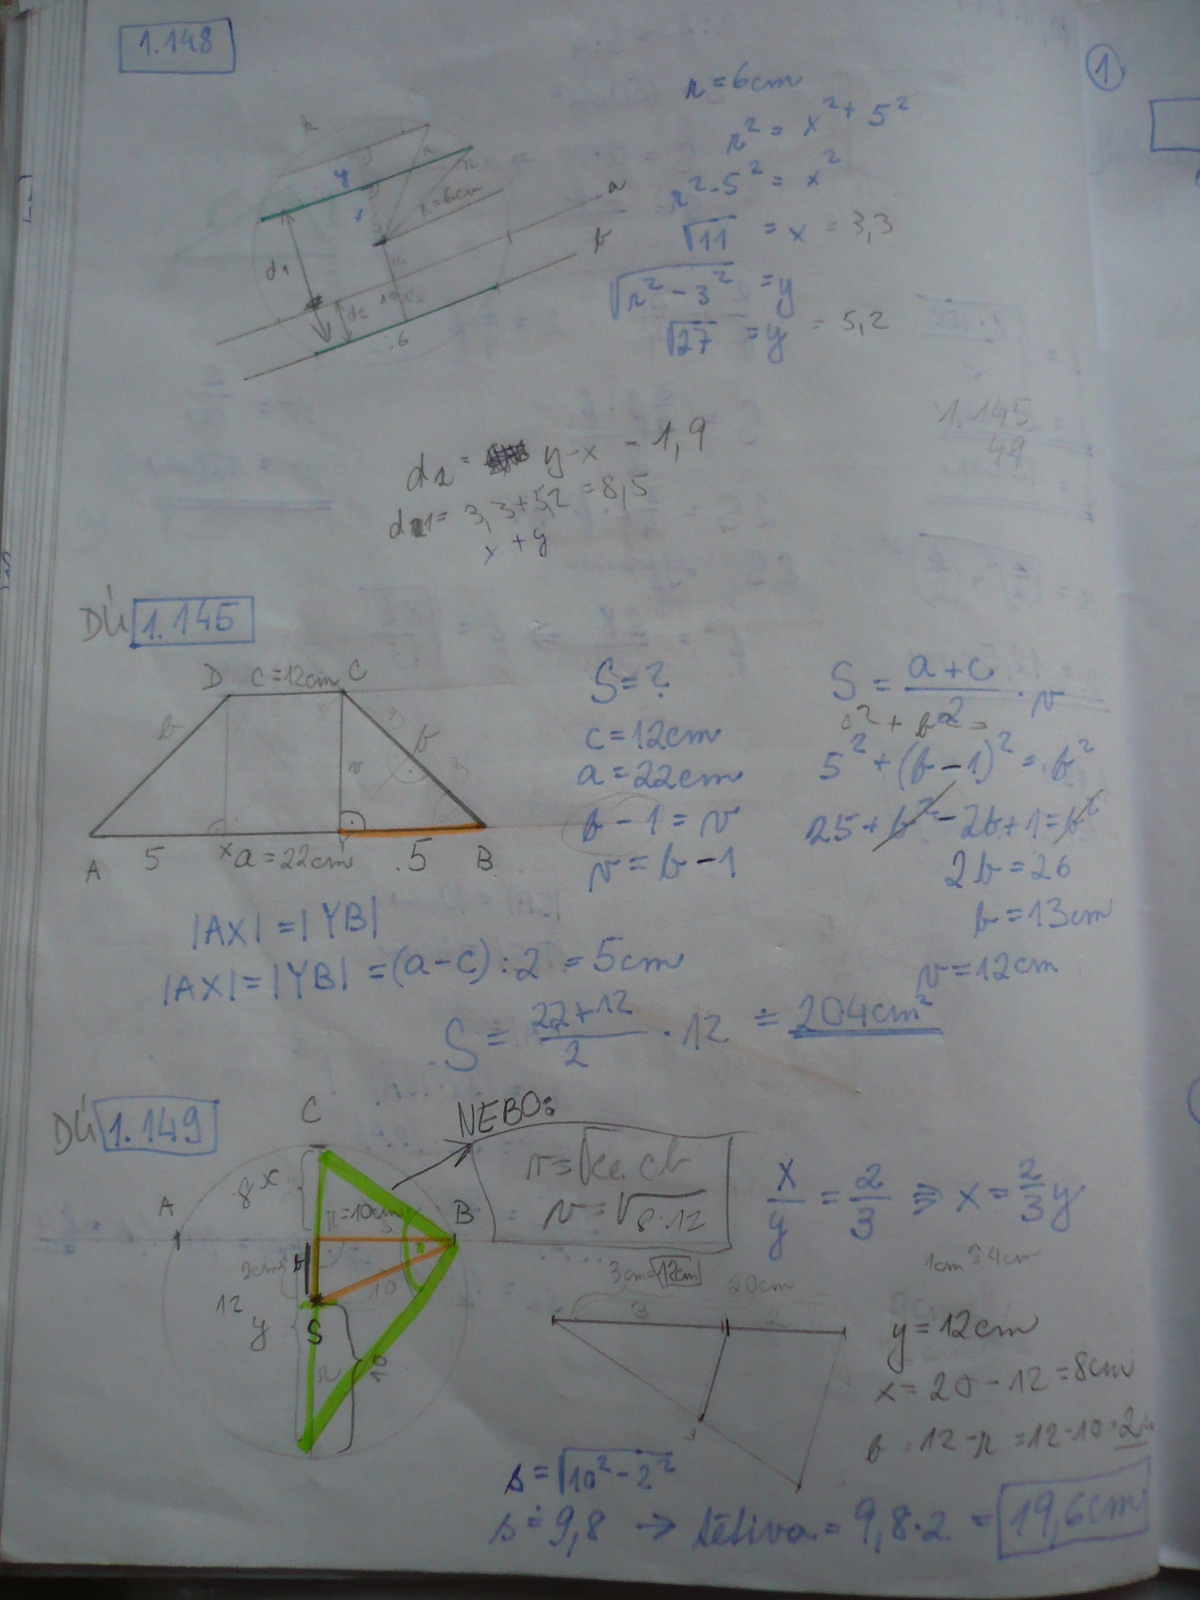 1.148
1
r = 6cm
r² = x² + 5²
r² - 5² = x²
√11 = x = 3,3
√r² - 3² = y
√27 = y = 5,2
r = 6cm
a
b
y
d1
d2
10
6
1.145
49
d2 = y - x = 1,9
d1 = 3,3 + 5,2 = 8,5
x + y
DÚ 1.145
D c = 12cm C
b
v
b
A 5 x a = 22cm 5 B
S = ?
c = 12cm
a = 22cm
b - 1 = v
v = b - 1
S = a + c / 2 · v
5² + (b - 1)² = b²
25 + b² - 2b + 1 = b²
2b = 26
b = 13cm
v = 12cm
|AX| = |YB|
|AX| = |YB| = (a - c) : 2 = 5cm
S ≐ 22 + 12 / 2 · 12 ≐ 204cm²
DÚ 1.149
C
NEBO:
v = √ca·cb
v = √8·12
8 x
A
r = 10cm
s
B
2cm
10
12 y
S
10
x/y = 2/3 ⇒ x = 2/3 y
1cm ≙ 4cm
3cm = 12cm
20cm
3
2
y = 12cm
x = 20 - 12 = 8cm
= 12 - r = 12 - 10 = 2
s = √10² - 2²
s ≐ 9,8 → tětiva = 9,8·2 = 19,6cm